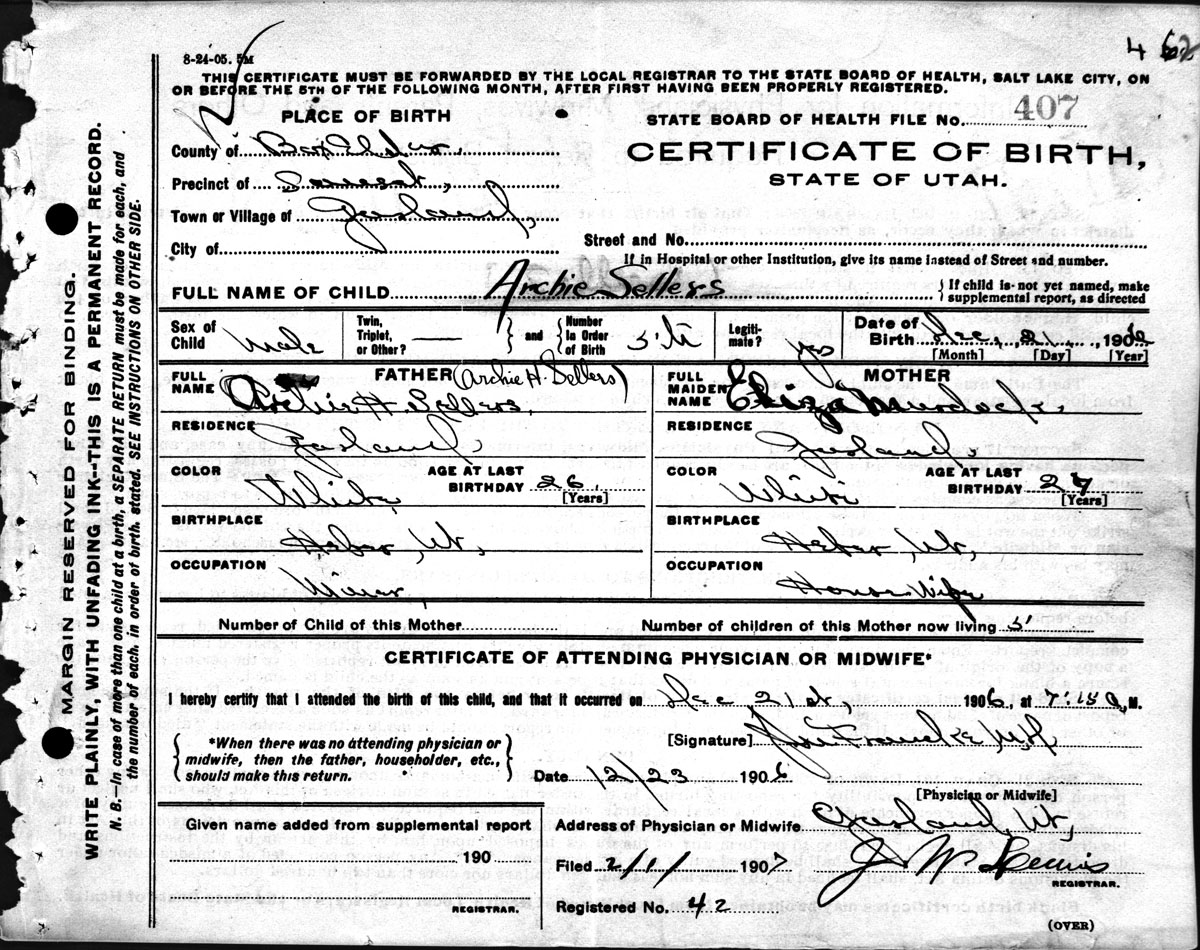 4 62
8-24-05. 5M
THIS CERTIFICATE MUST BE FORWARDED BY THE LOCAL REGISTRAR TO THE STATE BOARD OF HEALTH, SALT LAKE CITY, ON
OR BEFORE THE 5TH OF THE FOLLOWING MONTH, AFTER FIRST HAVING BEEN PROPERLY REGISTERED.
PLACE OF BIRTH
STATE BOARD OF HEALTH FILE No. 407
County of Box Elder,
CERTIFICATE OF BIRTH,
Precinct of
STATE OF UTAH.
Town or Village of Garland,
City of
Street and No.
If in Hospital or other Institution, give its name instead of Street and number.
FULL NAME OF CHILD Archie Sellers
{ If child is not yet named, make
supplemental report, as directed
Sex of Child Male
Twin, Triplet, or Other? —
and
Number In Order of Birth 5'th
Legiti-mate? yes
Date of Birth Dec, 21, 1906
[Month] [Day] [Year]
FATHER (Archie H. Sellers)
FULL NAME Archie H Sellers,
RESIDENCE Garland,
COLOR White
AGE AT LAST BIRTHDAY 26,
[Years]
BIRTHPLACE Heber, Ut,
OCCUPATION
MOTHER
FULL MAIDEN NAME Eliza Murdock,
RESIDENCE Garland,
COLOR White
AGE AT LAST BIRTHDAY 27
[Years]
BIRTHPLACE Heber, Ut,
OCCUPATION House Wife
Number of Child of this Mother
Number of children of this Mother now living 5
CERTIFICATE OF ATTENDING PHYSICIAN OR MIDWIFE*
I hereby certify that I attended the birth of this child, and that it occurred on Dec, 21st, 1906, at 7:15 a, M.
[Signature] Francke M.D.
{ *When there was no attending physician or
midwife, then the father, householder, etc.,
should make this return. }
Date 12/23 1906
[Physician or Midwife]
Given name added from supplemental report
190
REGISTRAR.
Address of Physician or Midwife Garland, Ut,
Filed 2/1/ 1907 J W
REGISTRAR.
Registered No. 42
(OVER)
MARGIN RESERVED FOR BINDING.
WRITE PLAINLY, WITH UNFADING INK--THIS IS A PERMANENT RECORD.
N. B.—In case of more than one child at a birth, a SEPARATE RETURN must be made for each, and
the number of each. in order of birth. stated. SEE INSTRUCTIONS ON OTHER SIDE.